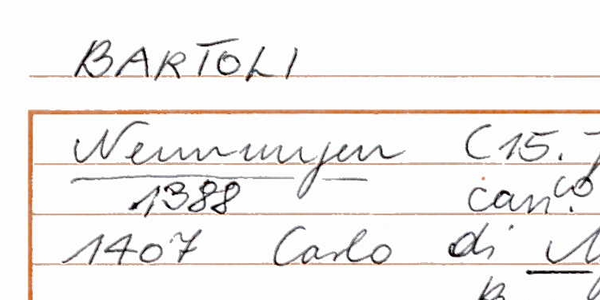 BARTOLI
Nennungen (15.
1388 can.co
1407 Carlo di
B